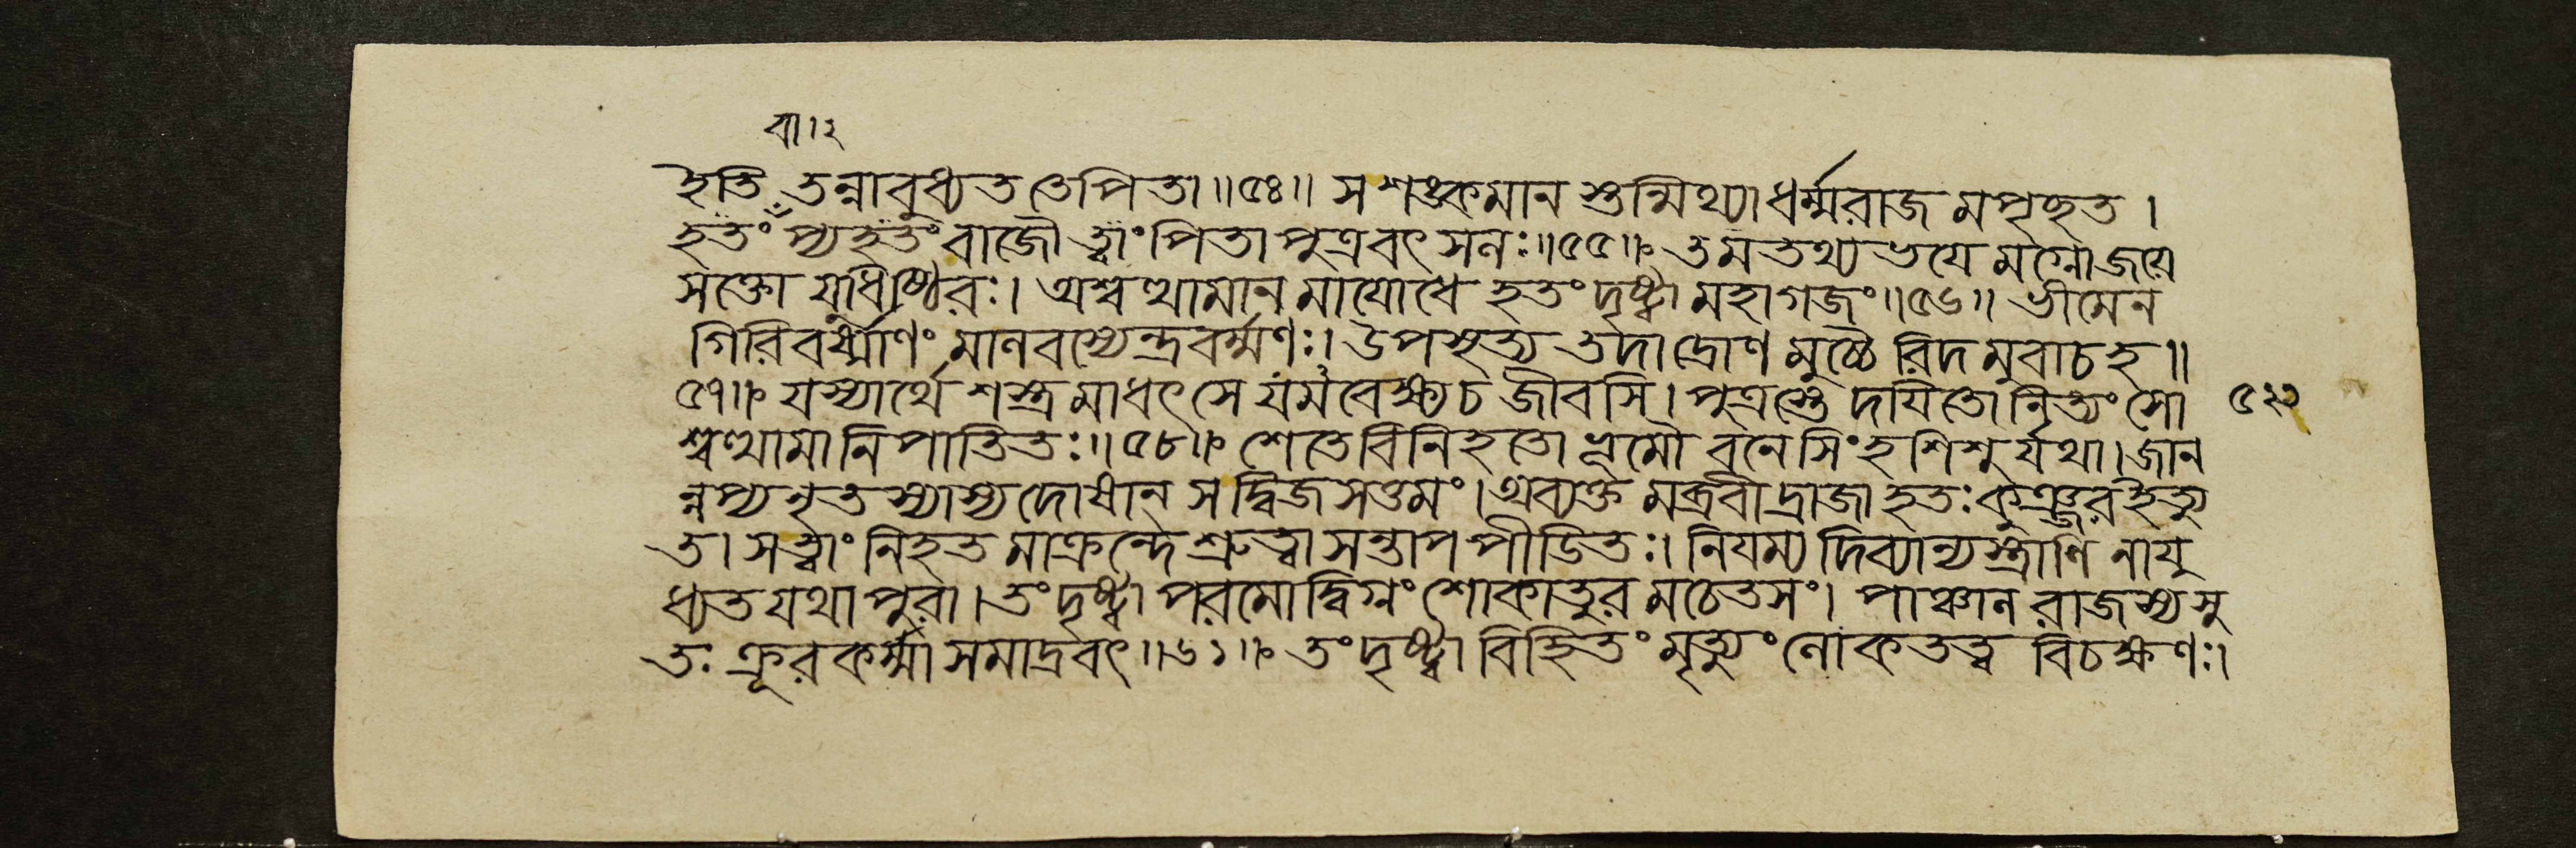 বা।২
ইতি তন্নাবুধ্যত তেপিতা॥৫৪॥ স শঙ্কমান স্তন্মিথ্যা ধর্ম্মরাজ মপৃচ্ছত।
হতং প্যহতং বাজৌ ত্বাং পিতা পুত্রবৎ সলঃ॥৫৫॥ তমতথ্য ভযে মগ্নোজযে
সক্তো যুধিষ্ঠিরঃ। অশ্বত্থামান মাযোধে হতং দৃষ্ট্বা মহাগজং॥৫৬॥ ভীমেন
গিরিবর্ষ্মাণং মালবস্যেন্দ্রবর্ম্মণঃ। উপসৃত্য তদা দ্রোণ মুচ্চৈ রিদ মুবাচহ॥
৫৭॥ যস্যার্থে শস্ত্র মাধৎসে যমবেক্ষ্যচ জীবসি। পুত্রস্তে দযিতো নিত্যং সো
শ্বত্থামা নিপাতিতঃ॥৫৮॥ শেতে বিনিহতো ভূমৌ বনে সিংহ শিশুর্যথা। জান
ন্নপ্যনৃতস্যাস্য দোষান্ স দ্বিজ সত্তমং। অব্যক্ত মব্রবীদ্রাজা হতঃ কুঞ্জর ইত্যু
ত। সত্বাং নিহত মাক্রন্দে শ্রুত্বা সন্তাপ পীডিতঃ। নিযম্য দিব্যান্যস্ত্রাণি নাযু
ধ্যত যথা পুরা। তং দৃষ্ট্বা পরমোদ্বিগ্নং শোকাতুর মচেতসং। পাঞ্চাল রাজস্য সু
তঃ ক্রূরকর্ম্মা সমাদ্রবৎ॥৬১॥ তং দৃষ্ট্বা বিহিতং মৃত্যুং লোকতত্ব বিচক্ষণঃ।